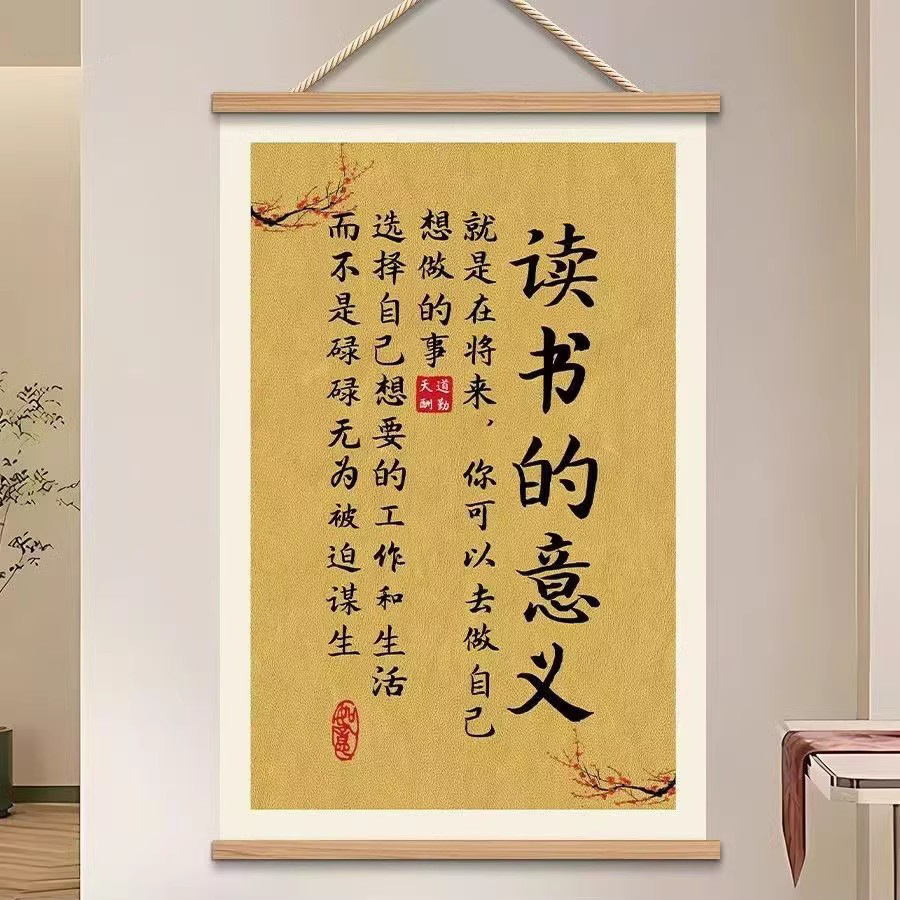 读书的意义
就是在将来，你可以去做自己
想做的事
道勤
天酬
选择自己想要的工作和生活
而不是碌碌无为被迫谋生
如意